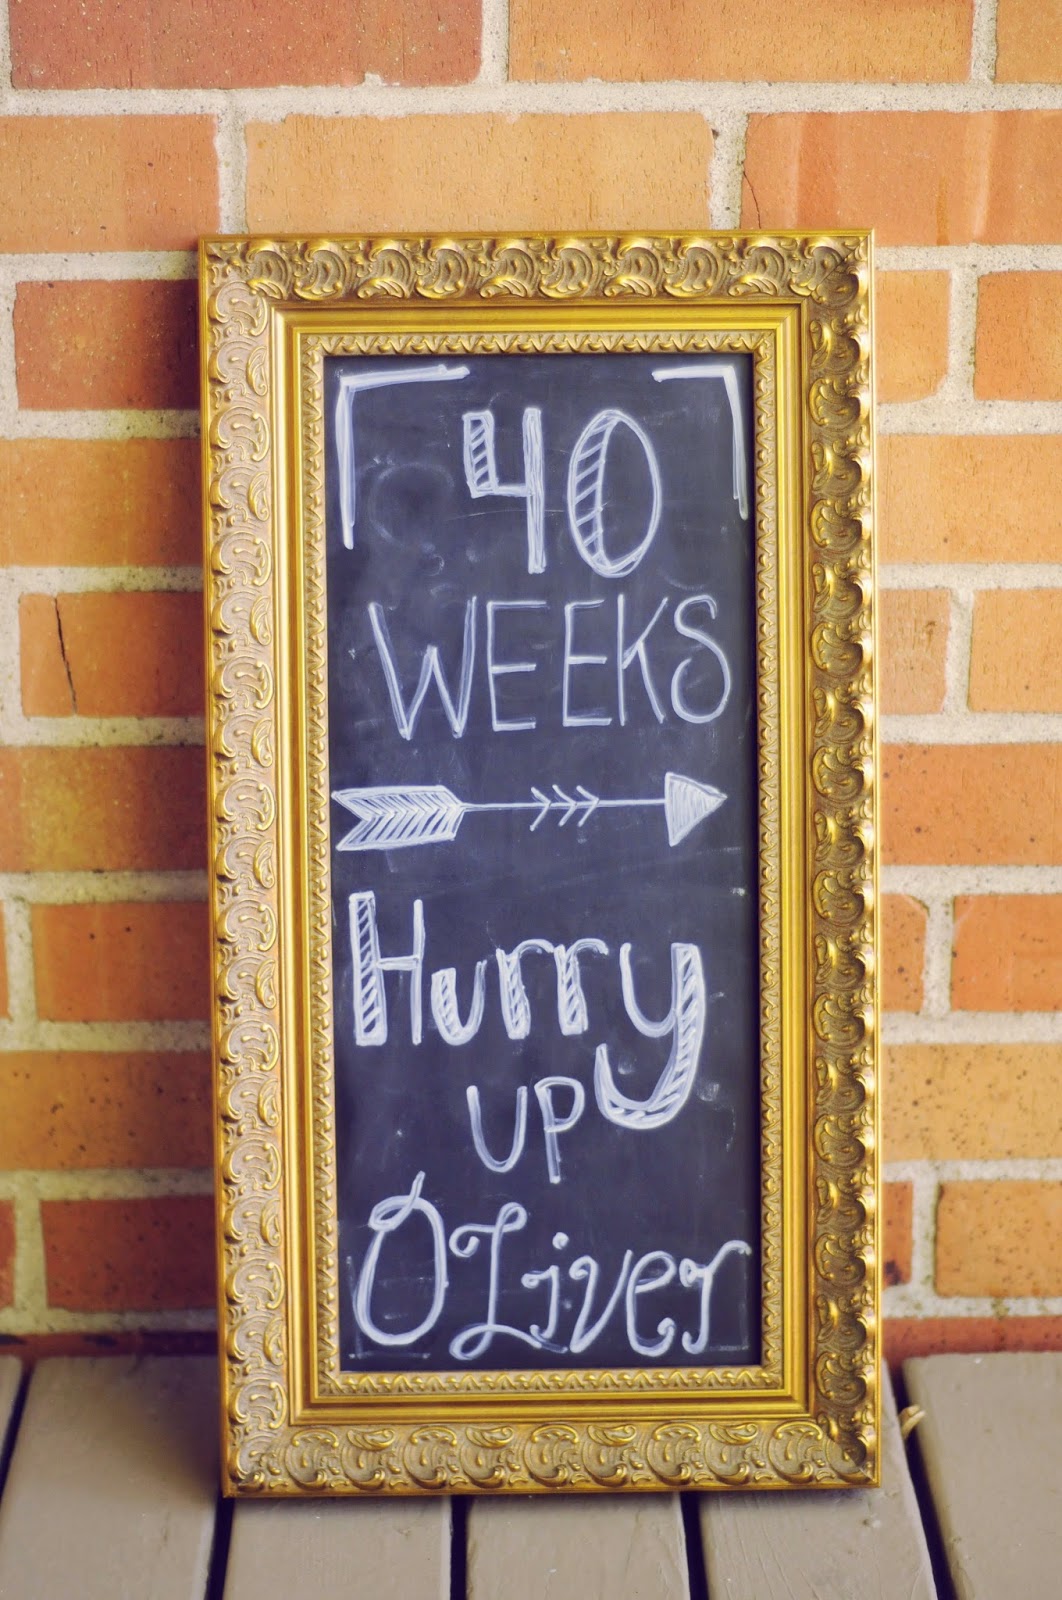 40
WEEKS
Hurry
UP
OLiver